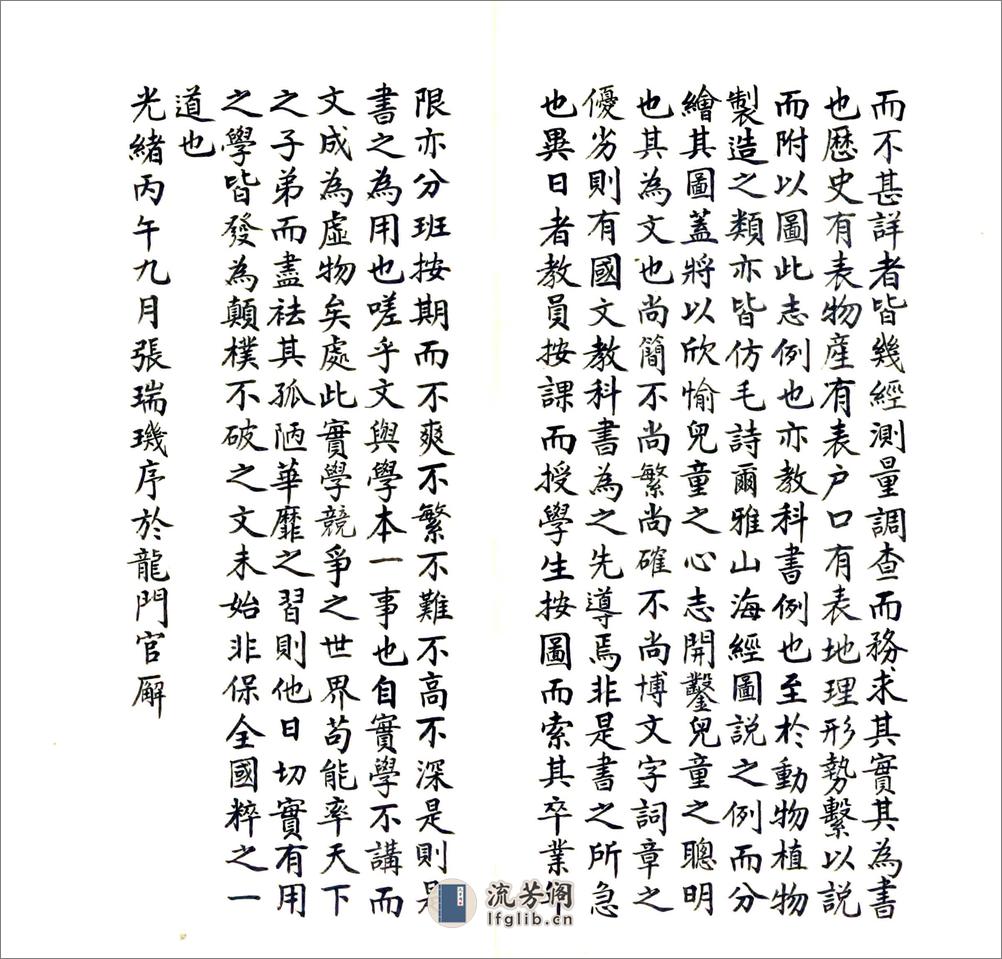 而不甚詳者皆幾經測量調查而務求其實其為書
也歷史有表物產有表户口有表地理形勢繫以説
而附以圖此志例也亦教科書例也至於動物植物
製造之類亦皆仿毛詩爾雅山海經圖説之例而分
繪其圖蓋將以欣愉兒童之心志開鑿兒童之聰明
也其為文也尚簡不尚繁尚確不尚博文字詞章之
優劣則有國文教科書為之先導焉非是書之所急
也異日者教員按課而授學生按圖而索其卒業
限亦分班按期而不爽不繁不難不高不深是則是
書之為用也嗟乎文與學本一事也自實學不講而
文成為虛物矣處此實學競爭之世界苟能率天下
之子弟而盡祛其孤陋華靡之習則他日切實有用
之學皆發為顛樸不破之文未始非保全國粹之一
道也
光緒丙午九月張瑞璣序於龍門官廨
流芳阁
lfglib.cn